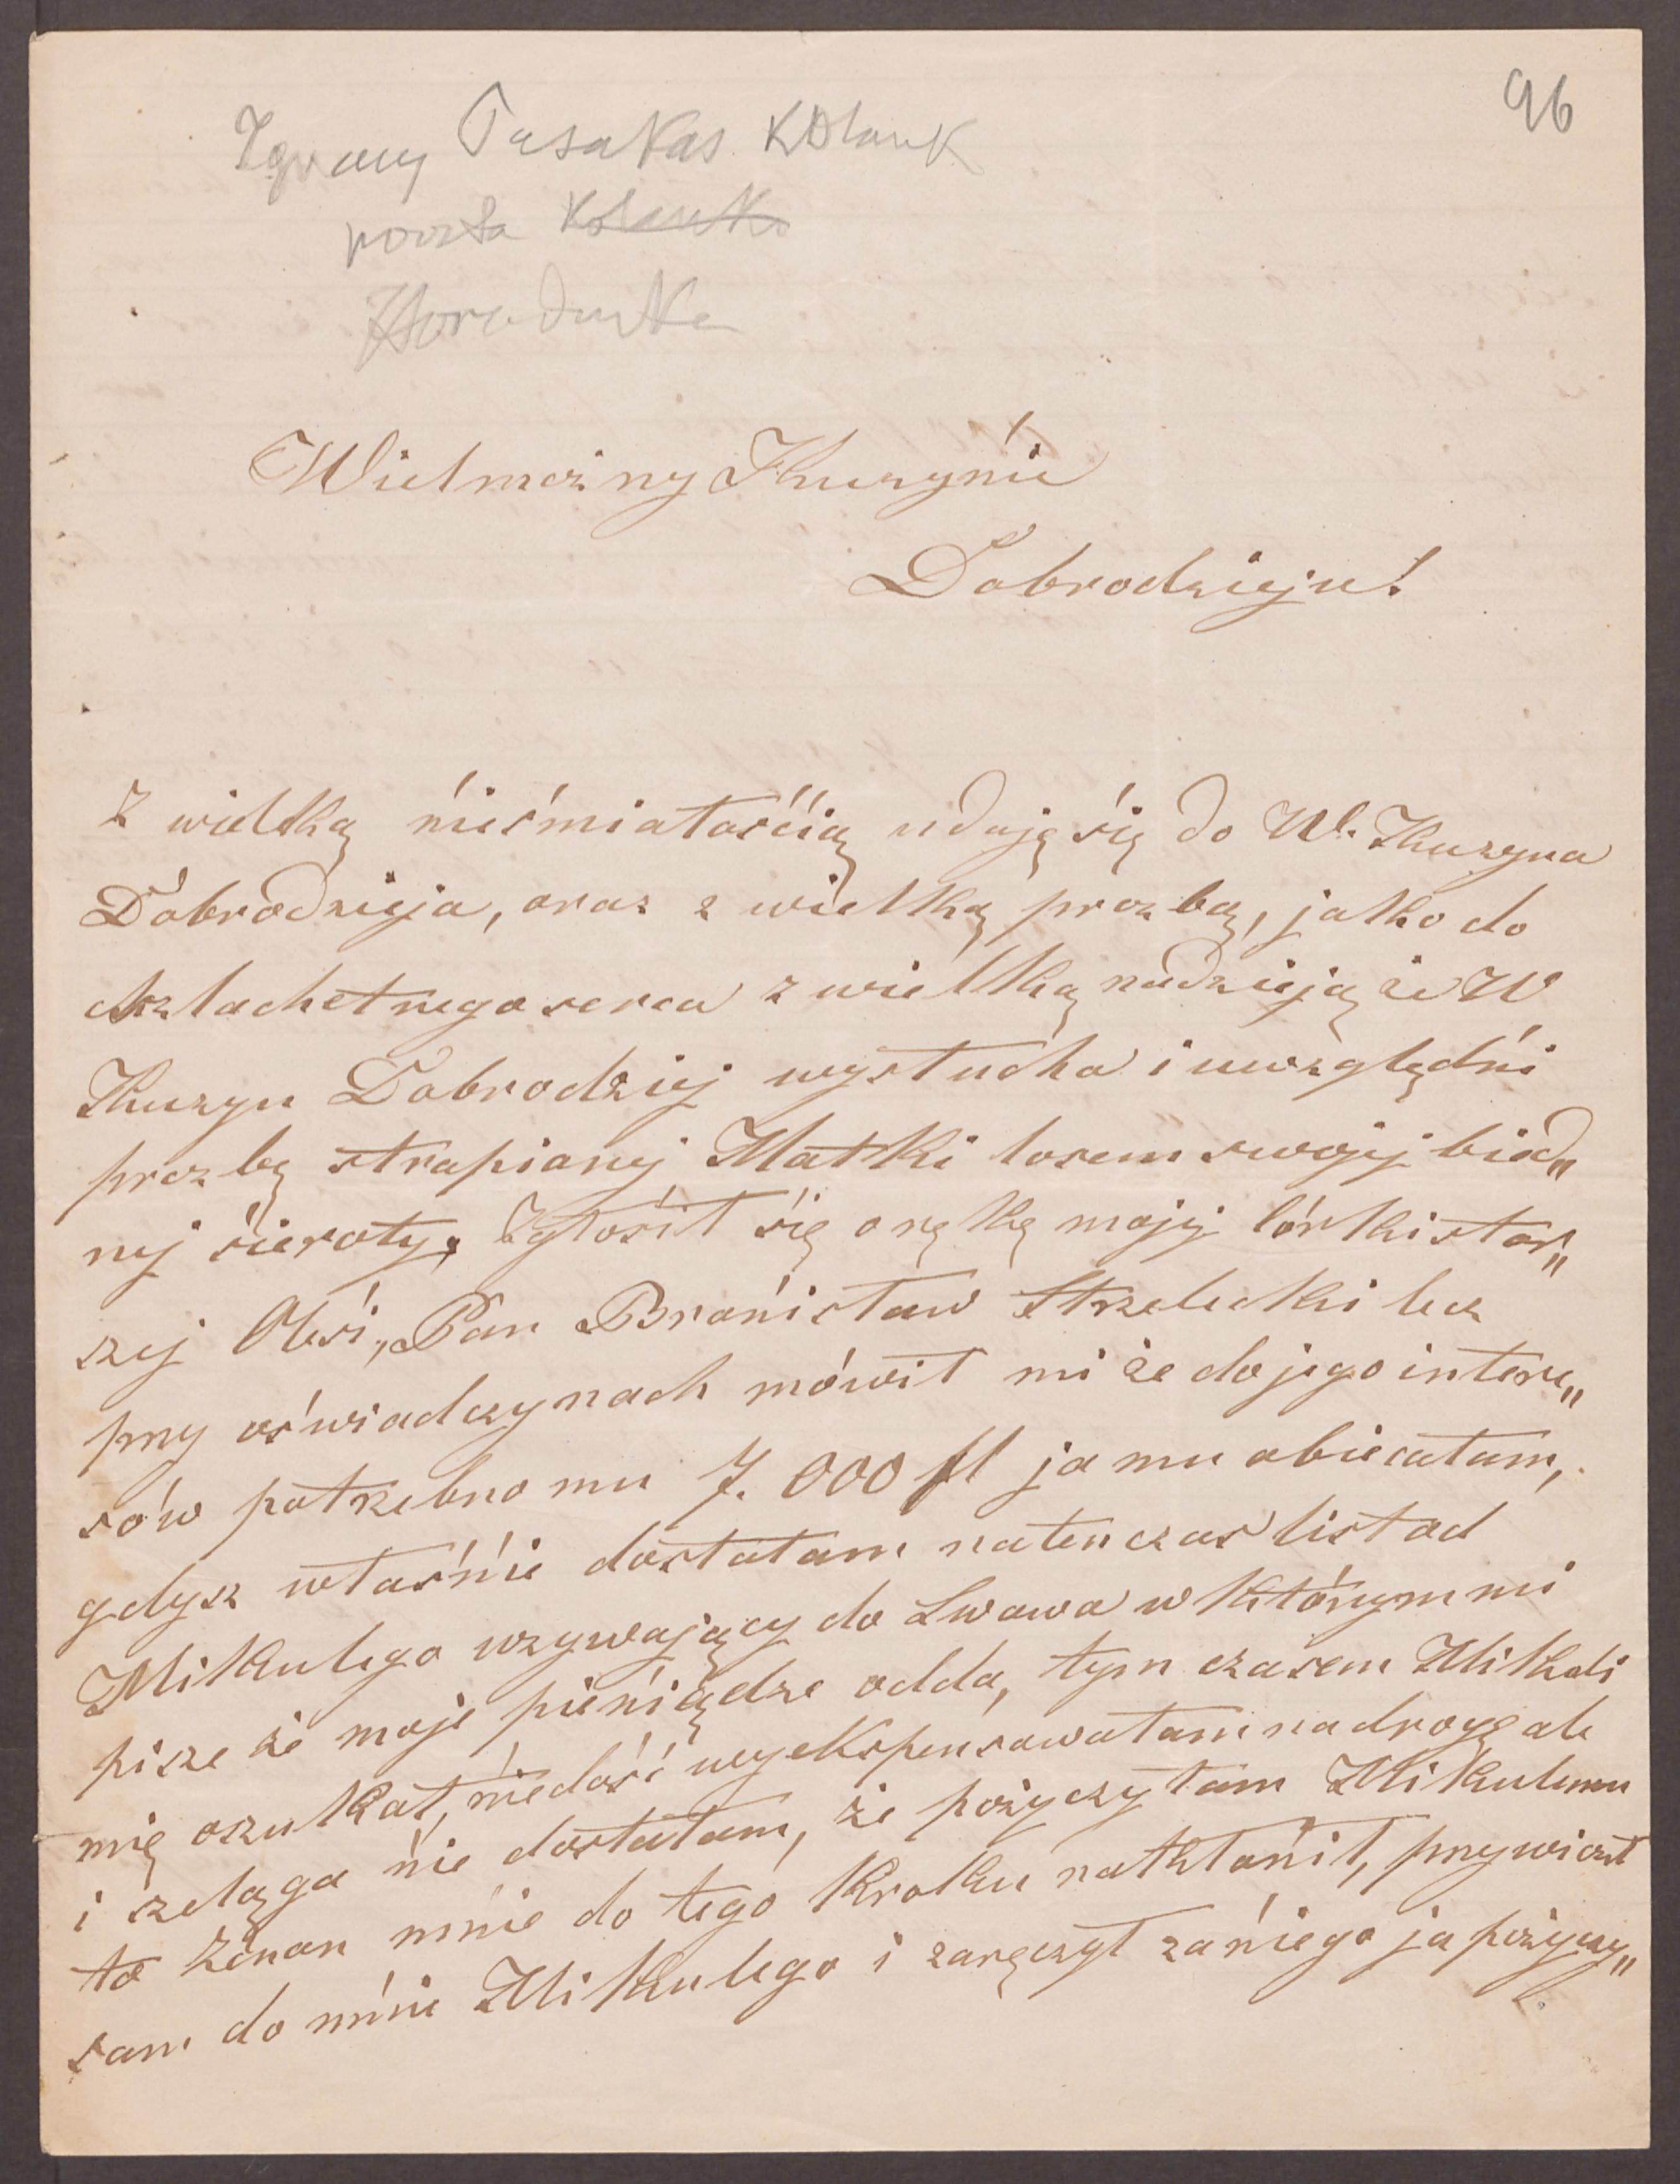 96
Ignacy Pasakas Kolank
poczta Kolanki
Horodenka
Wielmożny Kuzynie
Dobrodzieju!
Z wielką nieśmiałością udaję się do W. Kuzyna
Dobrodzieja, oraz z wielką prozbą, jako do
szlachetnego serca z wielką nadzieją że W
Kuzyn Dobrodziej wysłucha i uwzględni
prozbę strapionej Matki losem swojej bied„
nej sieroty, Zgłosił się o rękę mojej córki star„
szej Olesi, Pan Bronisław Strzelecki lecz
przy oświadczynach mówił mi że do jego intere„
sów potrzebno mu 7.000 fl ja mu obiecałam,
gdysz właśnie dostałam natenczas list od
Mikulego wzywający do Lwowa w którym mi
pisze że moje pieniądze odda, tym czasem Mikuli
mię oszukał, niedość wyekspensowałam na drogę ale
i szeląga nie dostałam, że pożyczyłam Mikulemu
to Zenon mnie do tego kroku nakłonił, przywiózł
sam do mnie Mikulego i zaręczył za niego ja pożyczy„